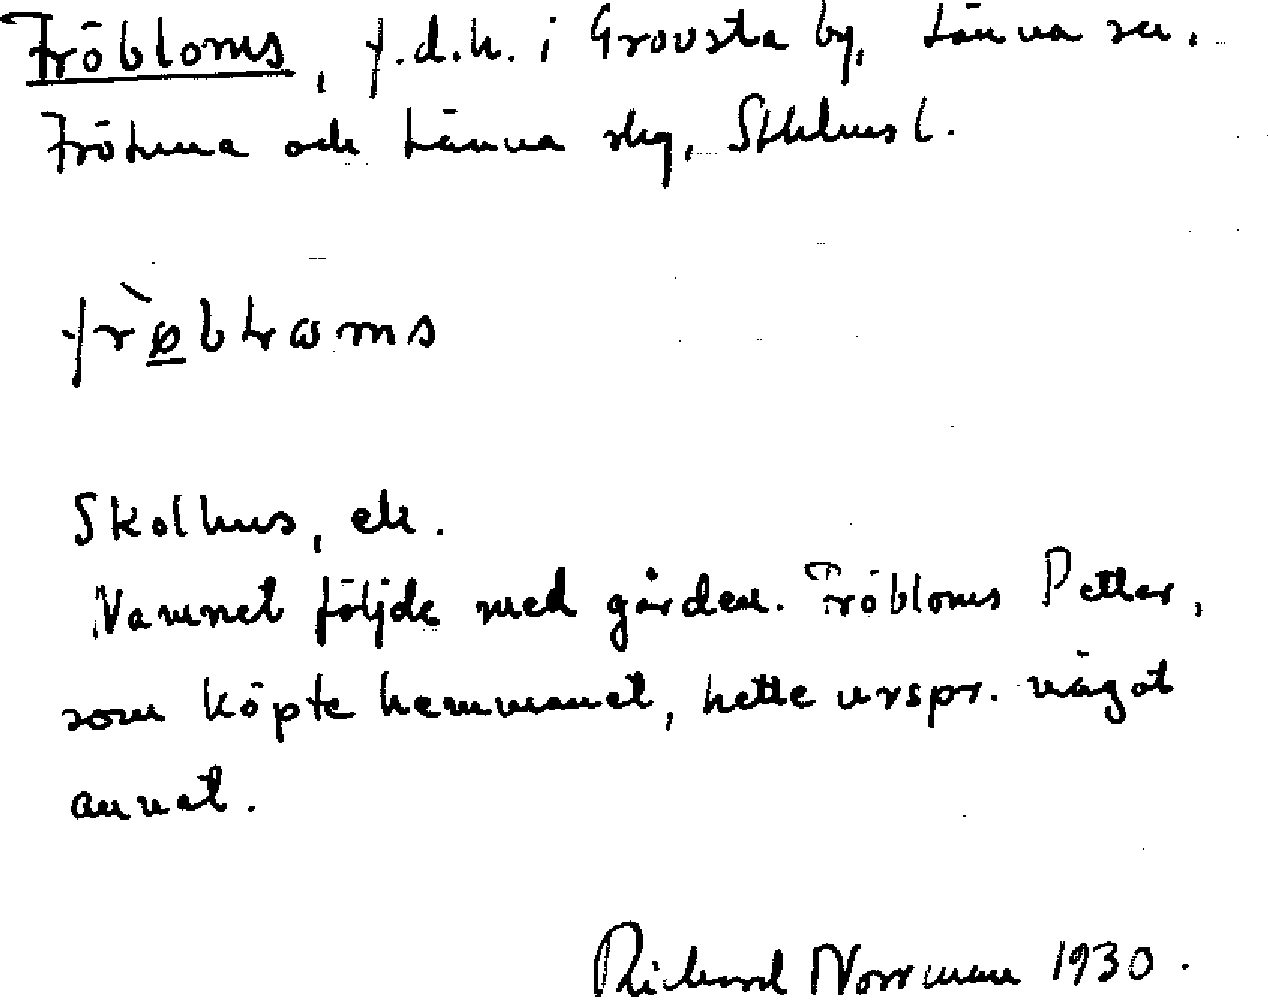 Fröbloms, f.d.h. i Grovsta by, Länna sn.
Frötuna och Länna skg, Sthlms l.
frø̀blωms
Skolhus, etc.
Namnet följde med gården. Fröbloms Petter,
som köpte hemmanet, hette urspr. något
annat.
Richard Norrman 1930.